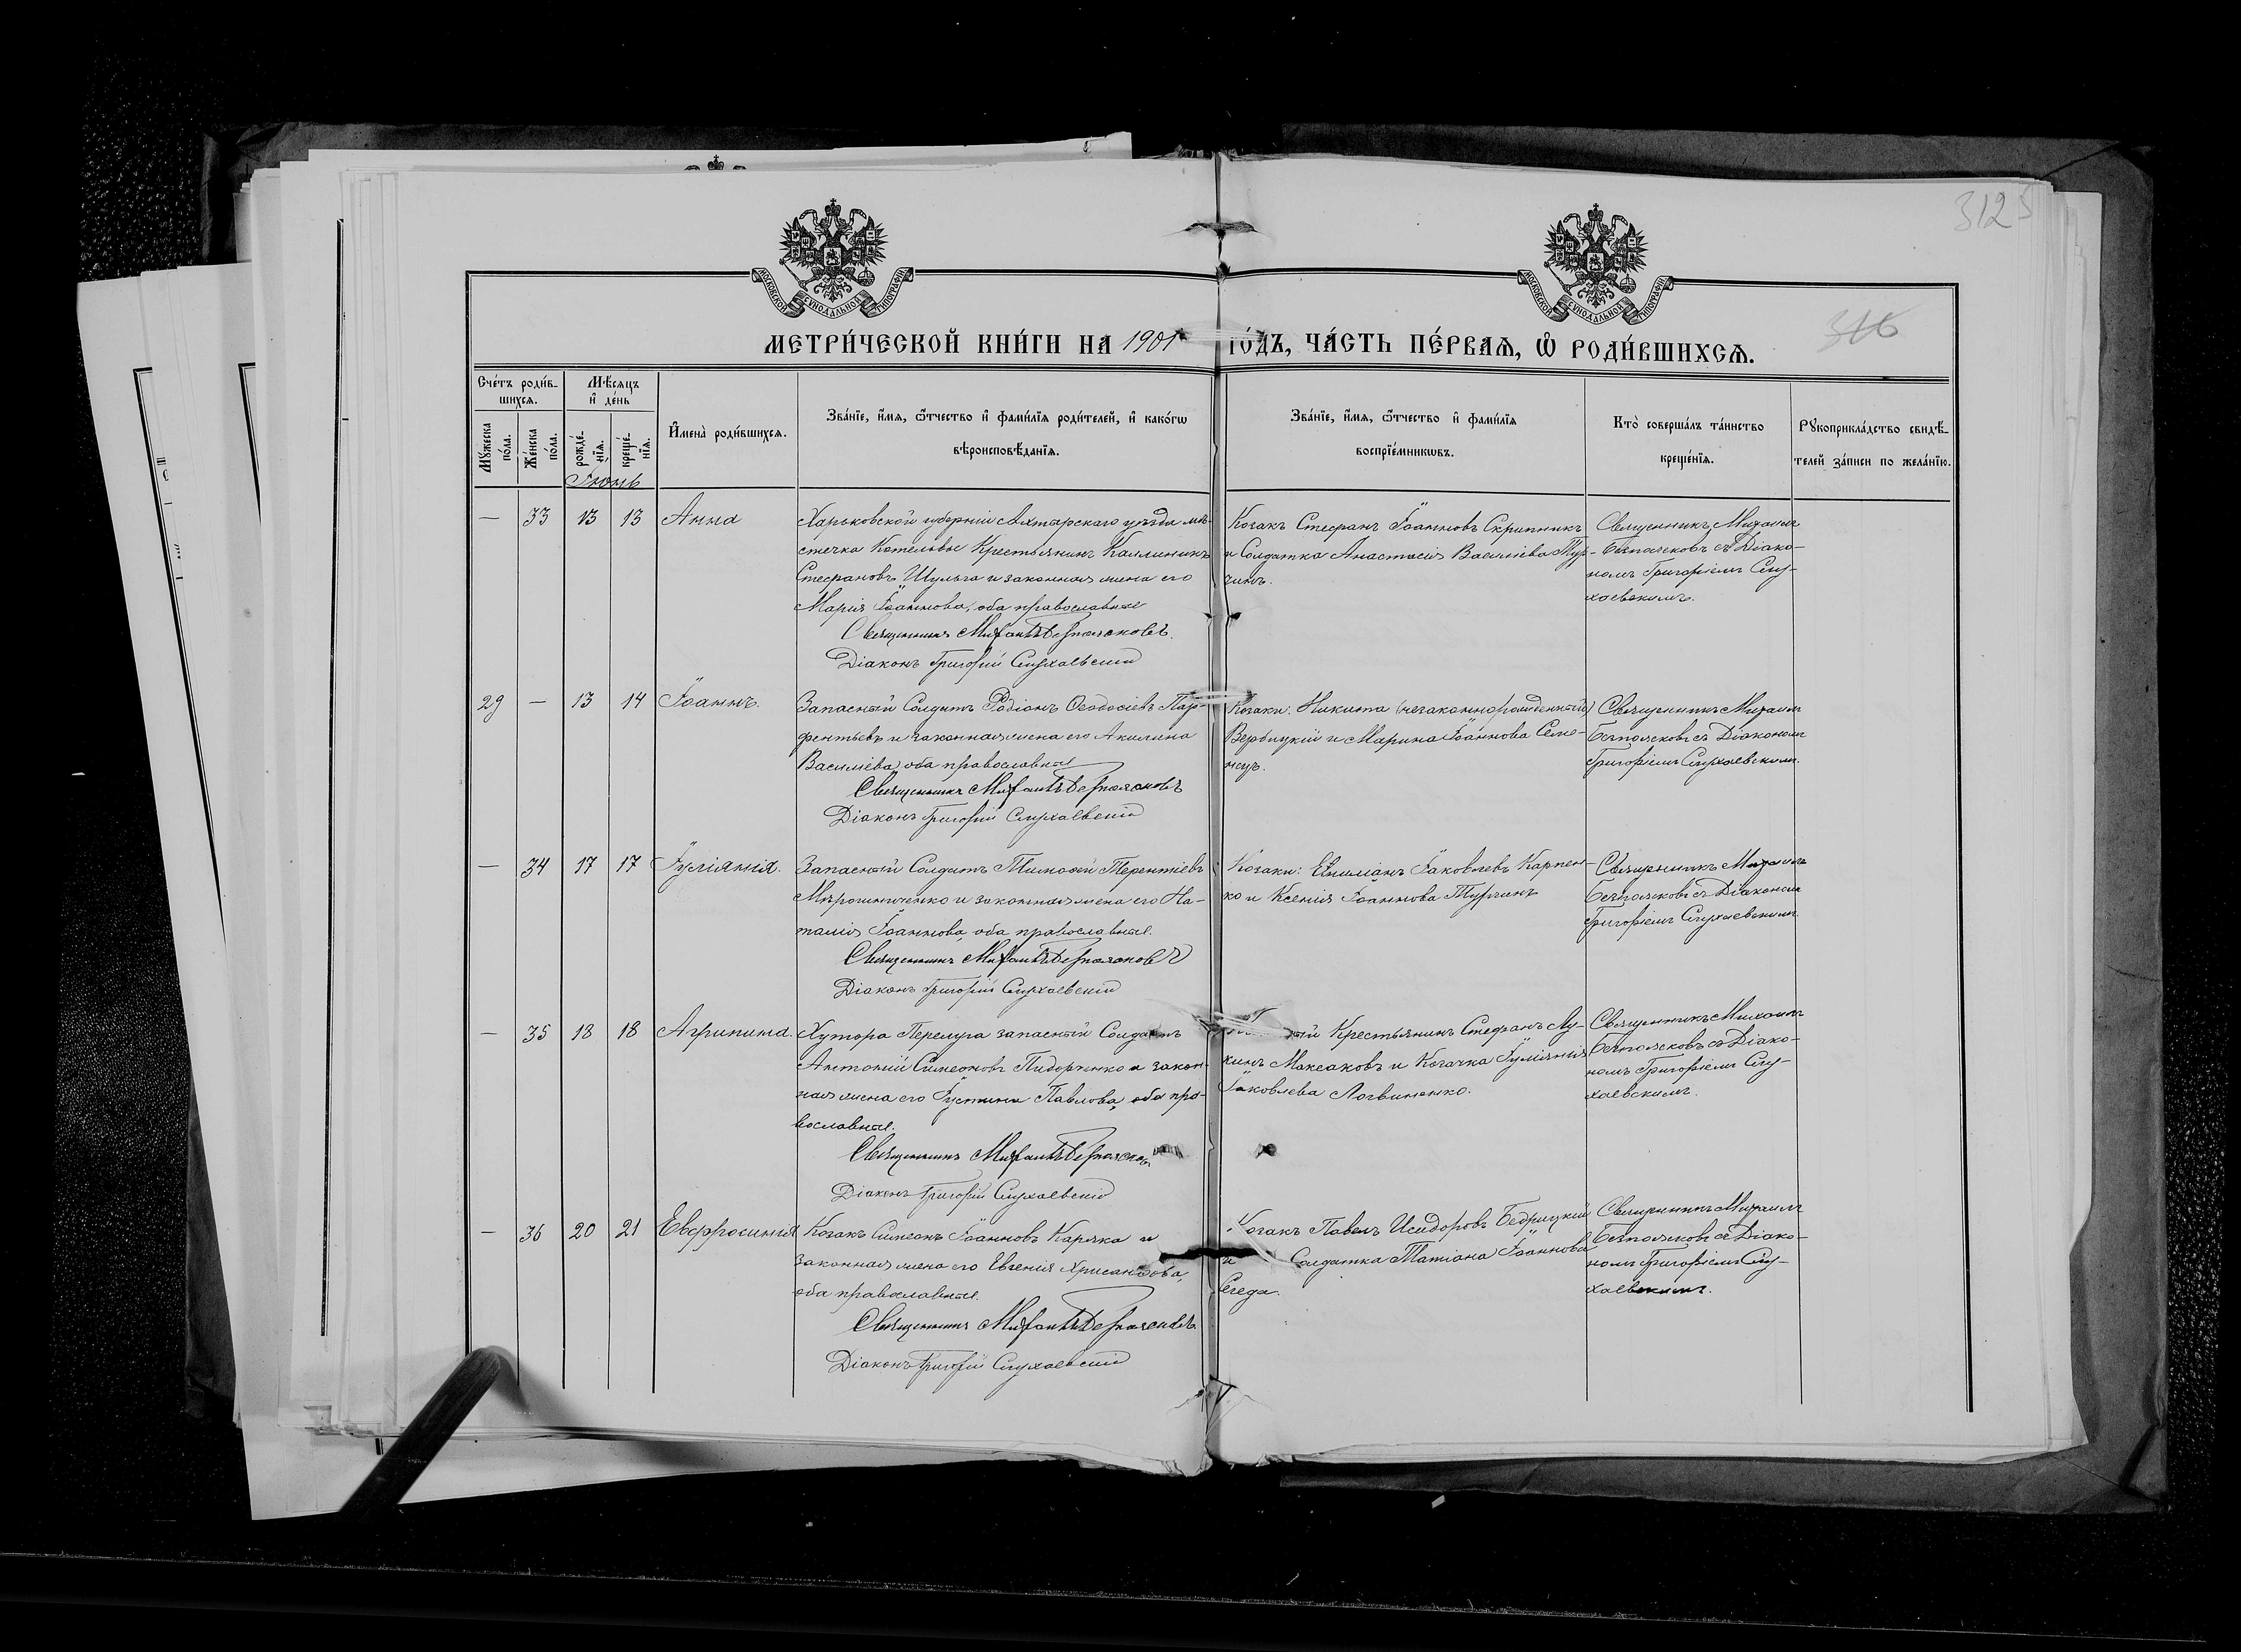 3125
316
МОСКОВСКОЙ СѴНОДАЛЬНОЙ ТИПОГРАФІИ
МОСКОВСКОЙ СѴНОДАЛЬНОЙ ТИПОГРАФІИ
МЕТРИ́ЧЕСКОЙ КНИ́ГИ НА 1901 ГО́ДЪ, ЧА́СТЬ ПЕ́РВАѦ, Ѡ҆ РОДИ́ВШИХСѦ.
Сче́тъ роди́в-
шихсѧ.
Мѣ́сѧцъ
и҆ де́нь
Мꙋ́жеска
по́ла.
Же́нска
по́ла.
рожде́-
нїѧ.
креще́-
нїѧ.
И҆мена̀ роди́вшихсѧ.
Зва́нїе, и҆́мѧ, ѻ҆́тчество и҆ фами́лїѧ роди́телей, и҆ како́гѡ
вѣроисповѣ́данїѧ.
Зва́нїе, и҆́мѧ, ѻ҆́тчество и҆ фами́лїѧ
воспрїе́мникѡвъ.
Кто̀ соверша́лъ та́инство
креще́нїѧ.
Рꙋкоприкла́дство свидѣ́-
телей за́писи по жела́нїю.
Іюнь
— 33 13 13 Анна
Харьковской губерніи Ахтырскаго уѣзда мѣ-
стечка Котельвы Крестьянинъ Каллиникъ
Стефановъ Шульга и законная жена его
Марія Іоаннова, оба православные
Священникъ Михаилъ Безпоясковъ.
Діаконъ Григорій Слухаевскій
Козакъ Стефанъ Іоанновъ Скрипникъ
и Солдатка Анастасія Василіева Тур-
чинъ.
Священникъ Михаилъ
Безпоясковъ съ Діако-
номъ Григоріемъ Слу-
хаевскимъ.
29 — 13 14 Іоаннъ.
Запасный Солдатъ Родіонъ Ѳеодосіевъ Пар-
фентьевъ и законная жена его Акилина
Василіева, оба православные
Священникъ Михаилъ Безпоясковъ
Діаконъ Григорій Слухаевскій
Козаки: Никита (незаконнорожденный)
Вербицкій и Марина Іоаннова Семе-
нецъ.
Священникъ Михаилъ
Безпоясковъ съ Діакономъ
Григоріемъ Слухаевскимъ.
— 34 17 17 Іуліанія.
Запасный Солдатъ Тимоѳей Терентіевъ
Мирошниченко и законная жена его На-
талія Іоаннова, оба православные.
Священникъ Михаилъ Безпоясковъ
Діаконъ Григорій Слухаевскій
Козаки: Емиліанъ Іаковлевъ Карпен-
ко и Ксенія Іоаннова Турчинъ
Священникъ Михаилъ
Безпоясковъ съ Діакономъ
Григоріемъ Слухаевскимъ
— 35 18 18 Агрипина.
Хутора Перелуга запасный Солдатъ
Антоній Симеоновъ Пидорченко и закон-
ная жена его Іустина Павлова, оба пра-
вославные.
Священникъ Михаилъ Безпоясковъ
Діаконъ Григорій Слухаевскій
Крестьянинъ Стефанъ Лу-
кинъ Максаковъ и Козачка Іуліанія
Іаковлева Логвиненко.
Священникъ Михаилъ
Безпоясковъ съ Діако-
номъ Григоріемъ Слу-
хаевскимъ.
— 36 20 21 Евфросинія
Козакъ Симеонъ Іоанновъ Каряка и
законная жена его Евгенія Хрисанфова,
оба православные.
Священникъ Михаилъ Безпоясковъ
Діаконъ Григорій Слухаевскій
Козакъ Павелъ Исидоровъ Бедрицкій
и Солдатка Татіана Іоаннова
Сегеда.
Священникъ Михаилъ
Безпоясковъ съ Діако-
номъ Григоріемъ Слу-
хаевскимъ.